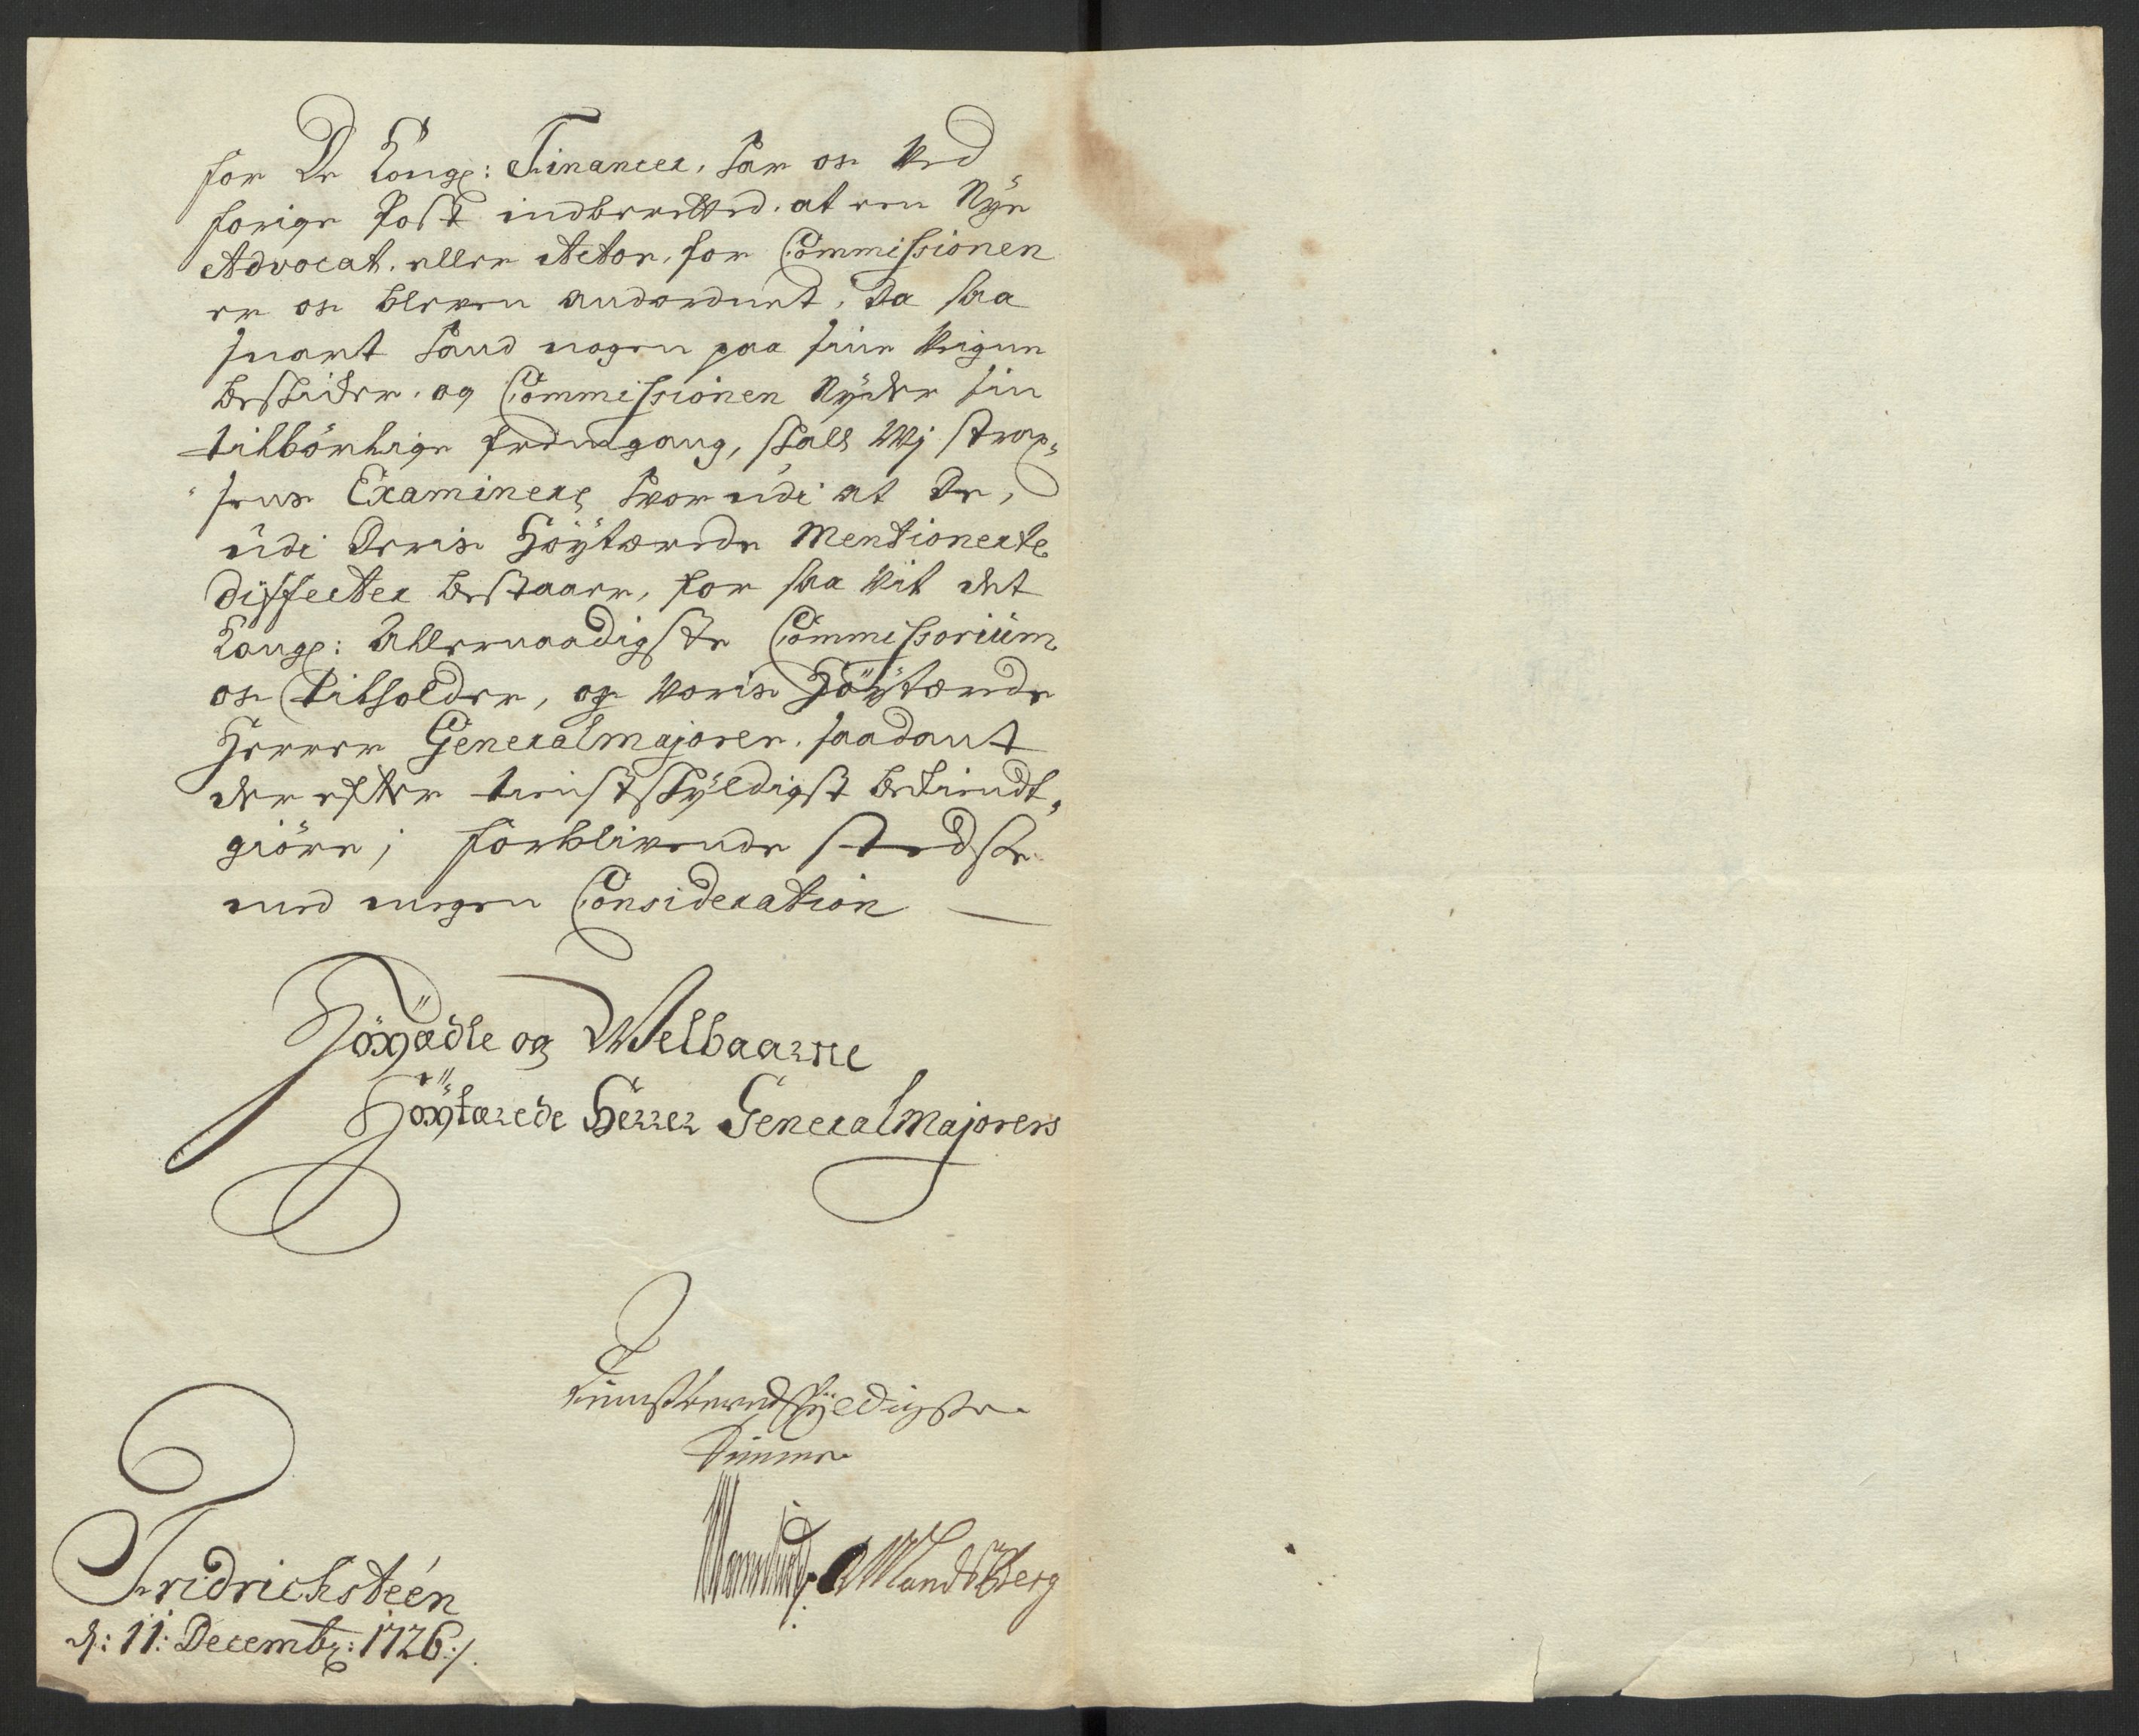 for De Kongl: Financer, har os Ved
forige Post indberettet, at een Nye
Advocat, eller Actor, for Commissionen
er os bleven andordnet, da saa
snart hand nogen paa sine Veigne
beskicker, og Commissionen Nyder sin
tilbörlige fremgang, skall Wj strax
sens Examinere, hvor udi at De,
udi Deris Höytærede Mentionerte
diffecter bestaaer, for saa Vit det
Kongl: Allernaadigste Commissorium
os tilholder, og Voris Höytærede
Herrer Generalmajorer, saadant
der efter tienstskyldigst bekiendt,
giöre; forblivende stedse
med megen Consideration
Höyædle og Welbaarne
Höytærede Herrer Generalmajorers
tienstberedskyldigste
Tienere
WandsBerg
Fridrichsteen
d: 11: Decembr: 1726 ./.